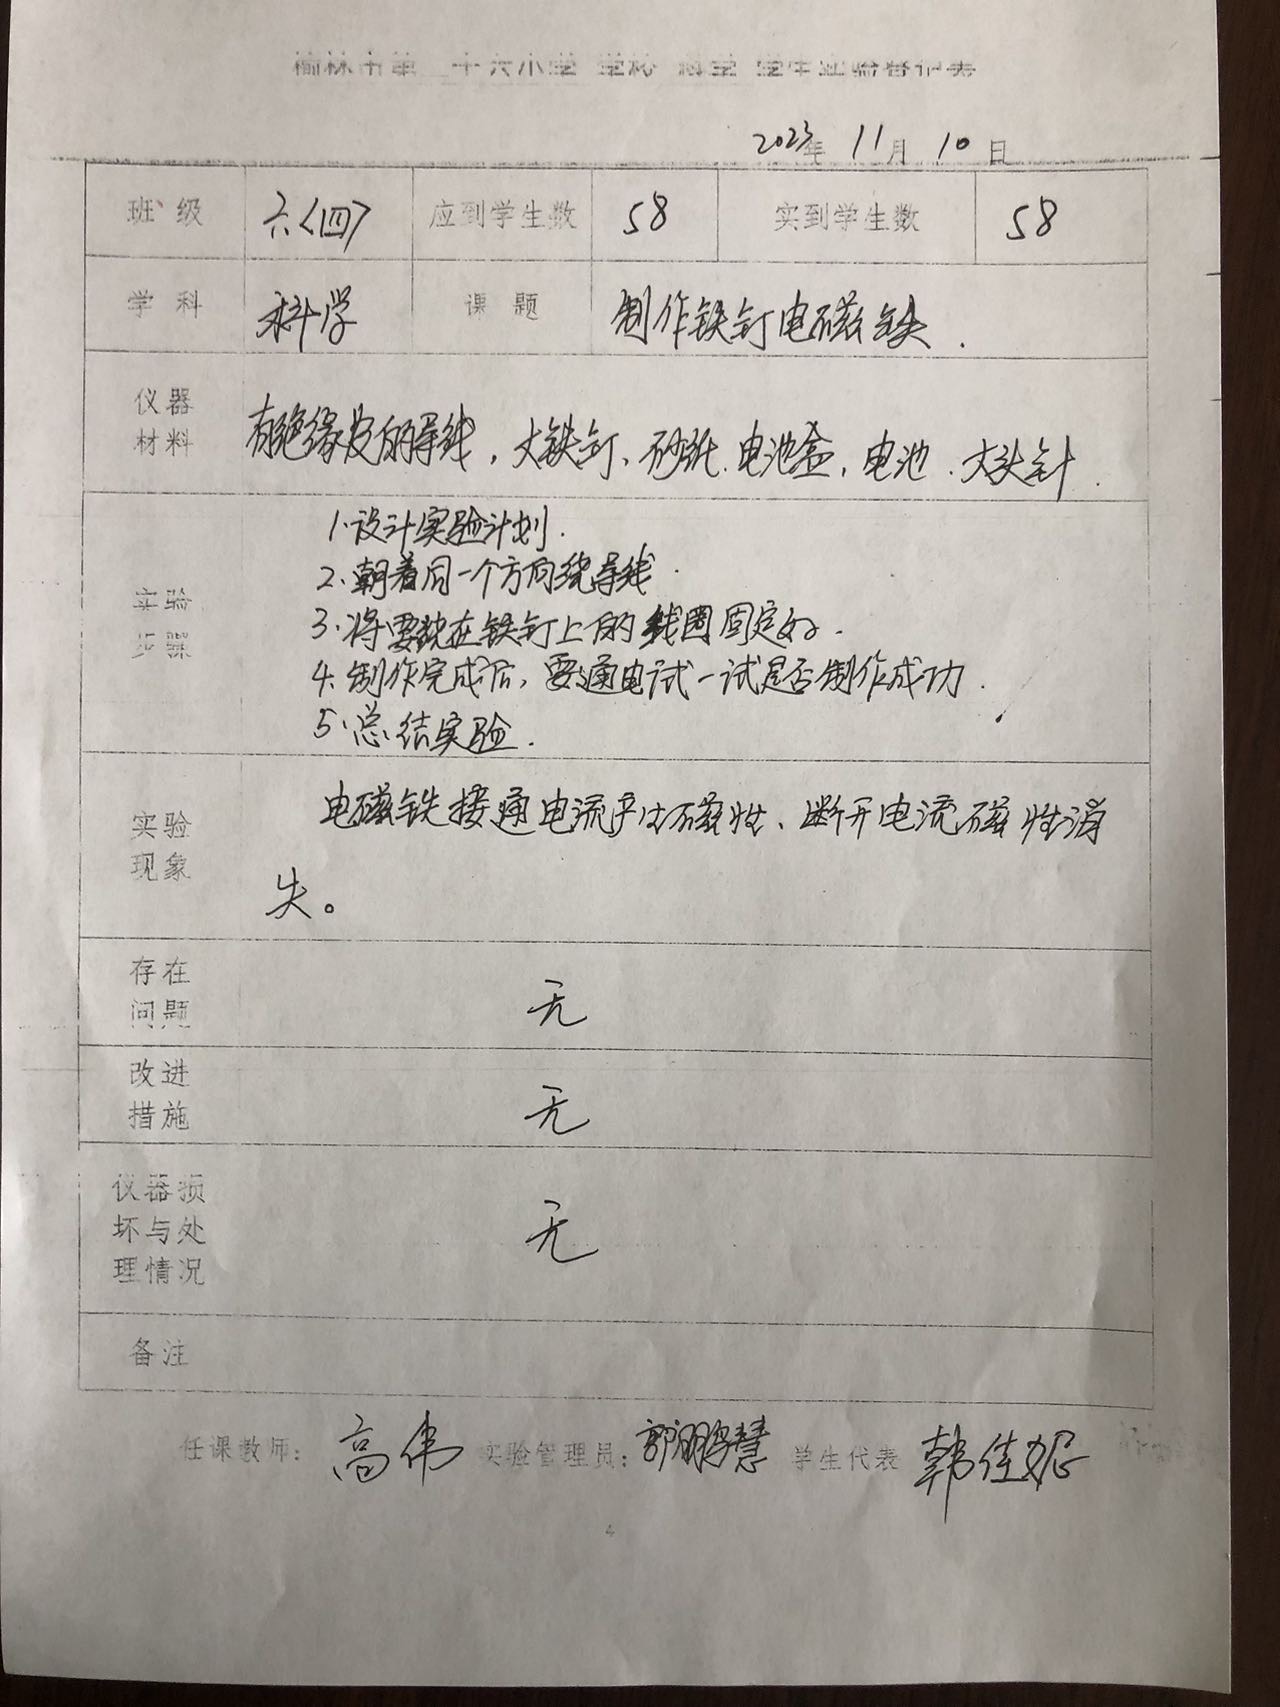 榆林市第二十六小学 学校 科学 学生实验登记表
2023年 11月 10日
班 级 六〈四〉 应到学生数 58 实到学生数 58
学 科 科学 课 题 制作铁钉电磁铁.
仪器
材料
有绝缘皮的导线,大铁钉、砂纸.电池盒,电池.大头针.
1.设计实验计划.
2.朝着同一个方向绕导线.
3.将要绕在铁钉上的线圈固定好.
4.制作完成后,要通电试一试是否制作成功.
5.总结实验.
实验
现象
电磁铁接通电流产生磁性、断开电流磁性消
失。
存在
问题
无
改进
措施
无
仪器损
坏与处
理情况
无
备注
任课教师: 高伟 实验管理员: 郭鹏慧 学生代表 韩佳妮
4